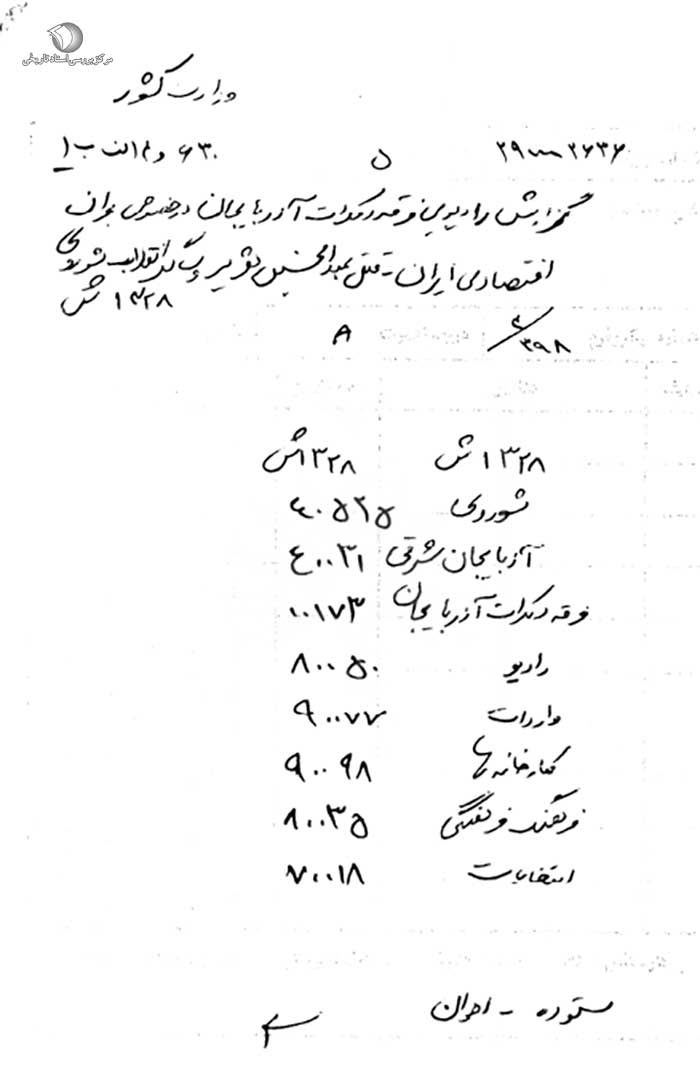 مرکز بررسی اسناد تاریخی
وزارت کشور
۲۹۰۰۰۲۶۳۶ ۵ ۶۳۰ و ۴ الف ب ۱
گزارش رادیویی فرقه دمکرات آذربایجان در خصوص بحران
اقتصادی ایران - قتل عبدالحسین انقلاب شوروی
۱۳۲۸ ش
۳/۳۹۸ ۸
۱۳۲۸ ش ۱۳۲۸ ش
شوروی ۴۰۵۲۵
آذربایجان شرقی ۴۰۰۳۱
فرقه دمکرات آذربایجان ۱۰۰۱۷۳
رادیو ۸۰۰۵۰
واردات ۹۰۰۷۷
کارخانه‌ها ۹۰۰۹۸
۸۰۰۳۵
انتخابات ۷۰۰۱۸
ستوده -